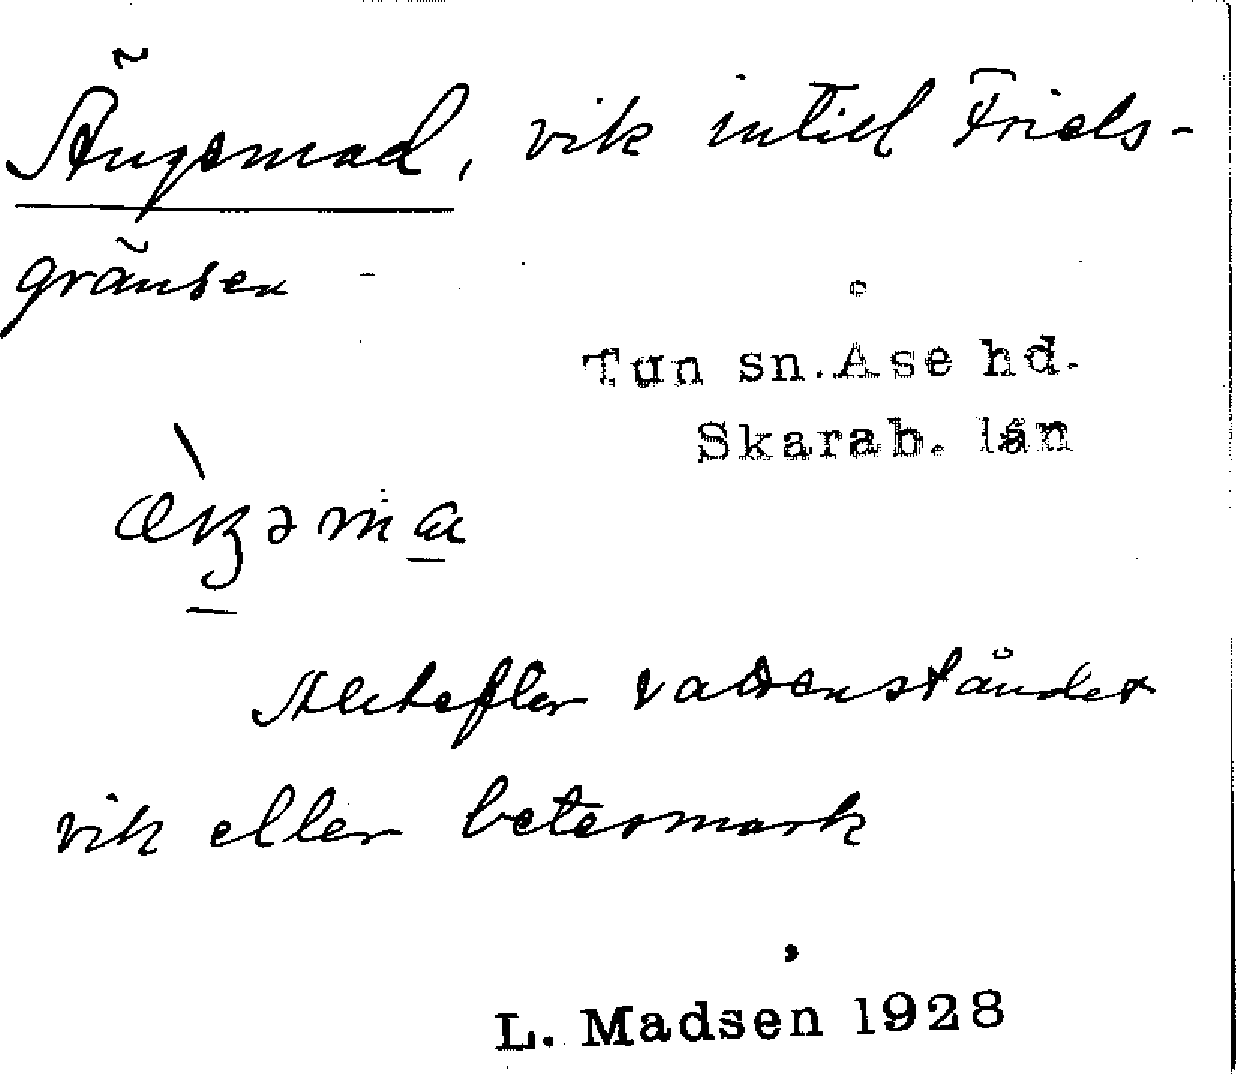 Ängsmad, vik intill Friels-
gränsen -
Tun sn. Åse hd.
Skarab. län
Allt efter vattenståndet
vik eller betesmark
L. Madsen 1928